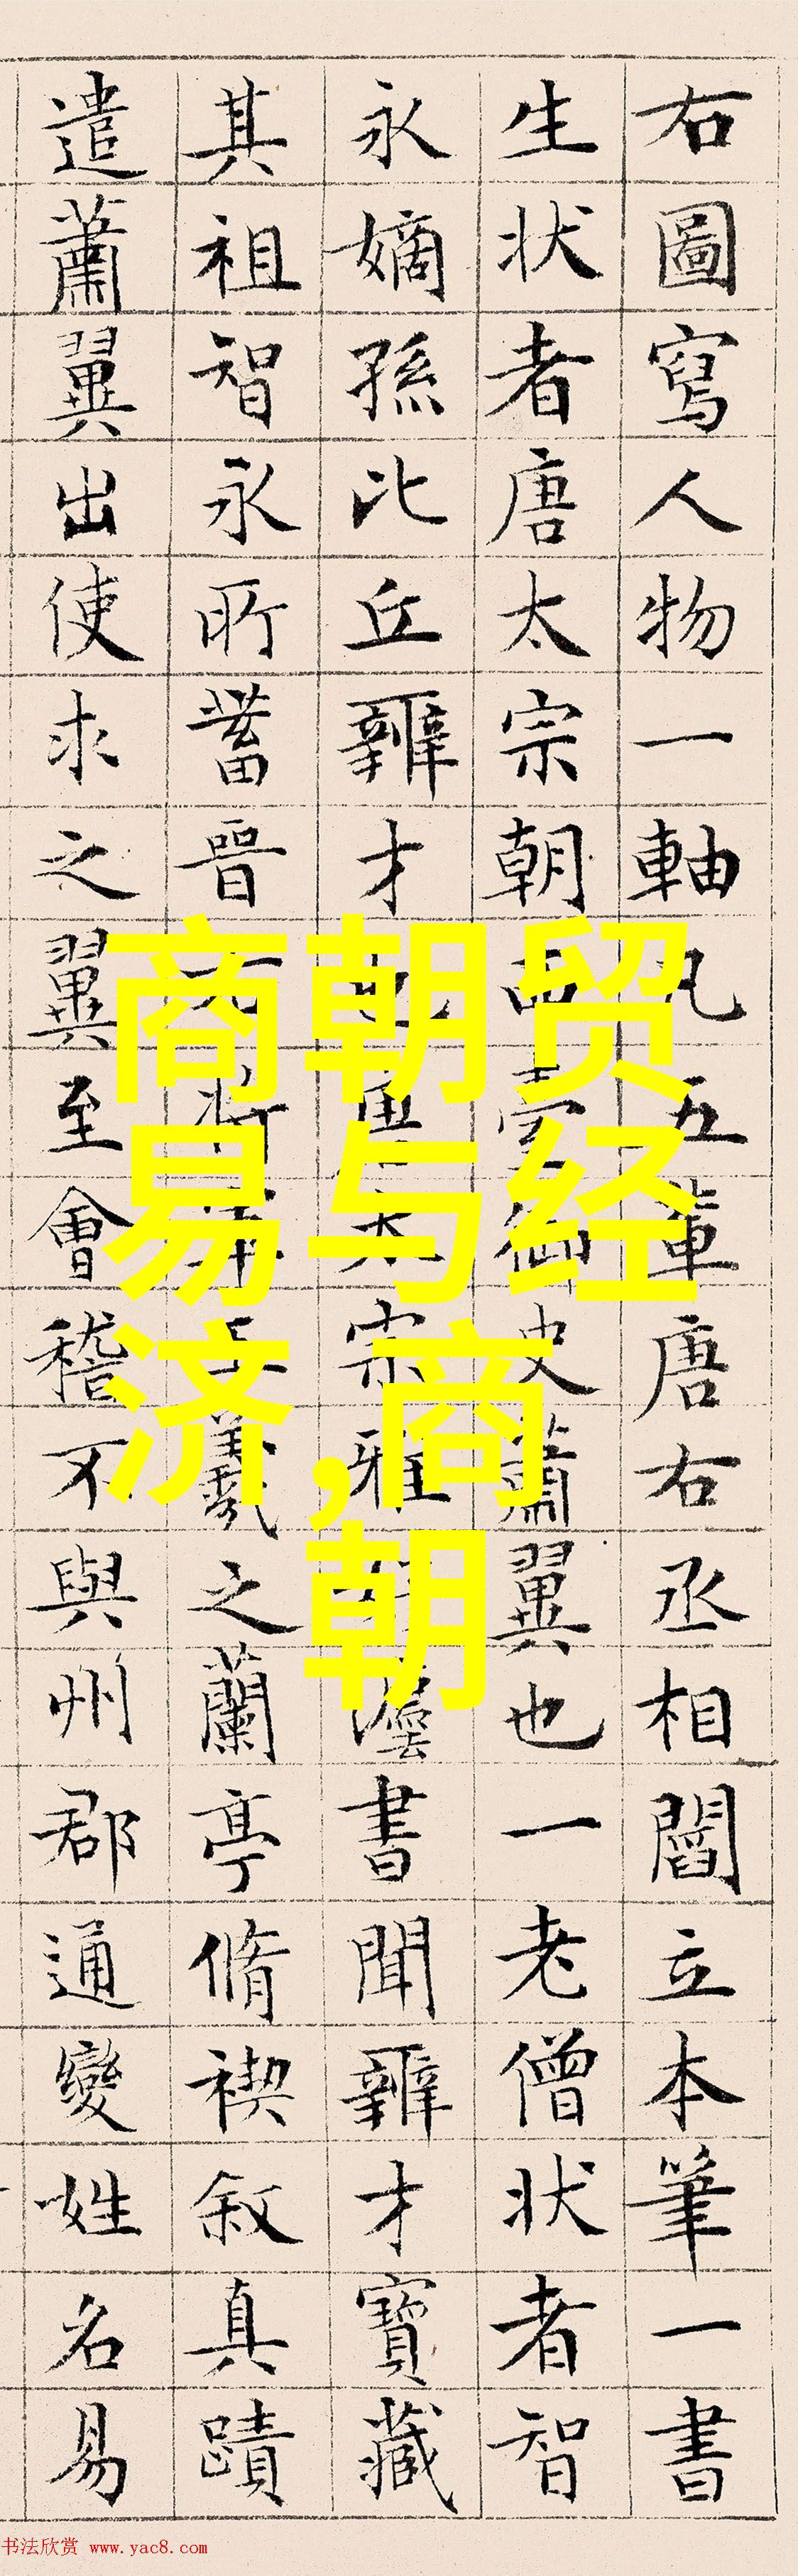 右圖寫人物一軸凡五輩唐右丞相閻立本筆一書
生狀者唐太宗朝西臺御史蕭翼也一老僧狀者智
永嫡孫比丘辯才也太宗雅好灋書聞辯才寶藏
其祖智永所蓄晉右將軍王羲之蘭亭脩禊叙真蹟
遣蕭翼出使求之翼至會稽不與州郡通變姓名易
商朝贸
易与经
济,商
朝
书法欣赏 www.yac8.com